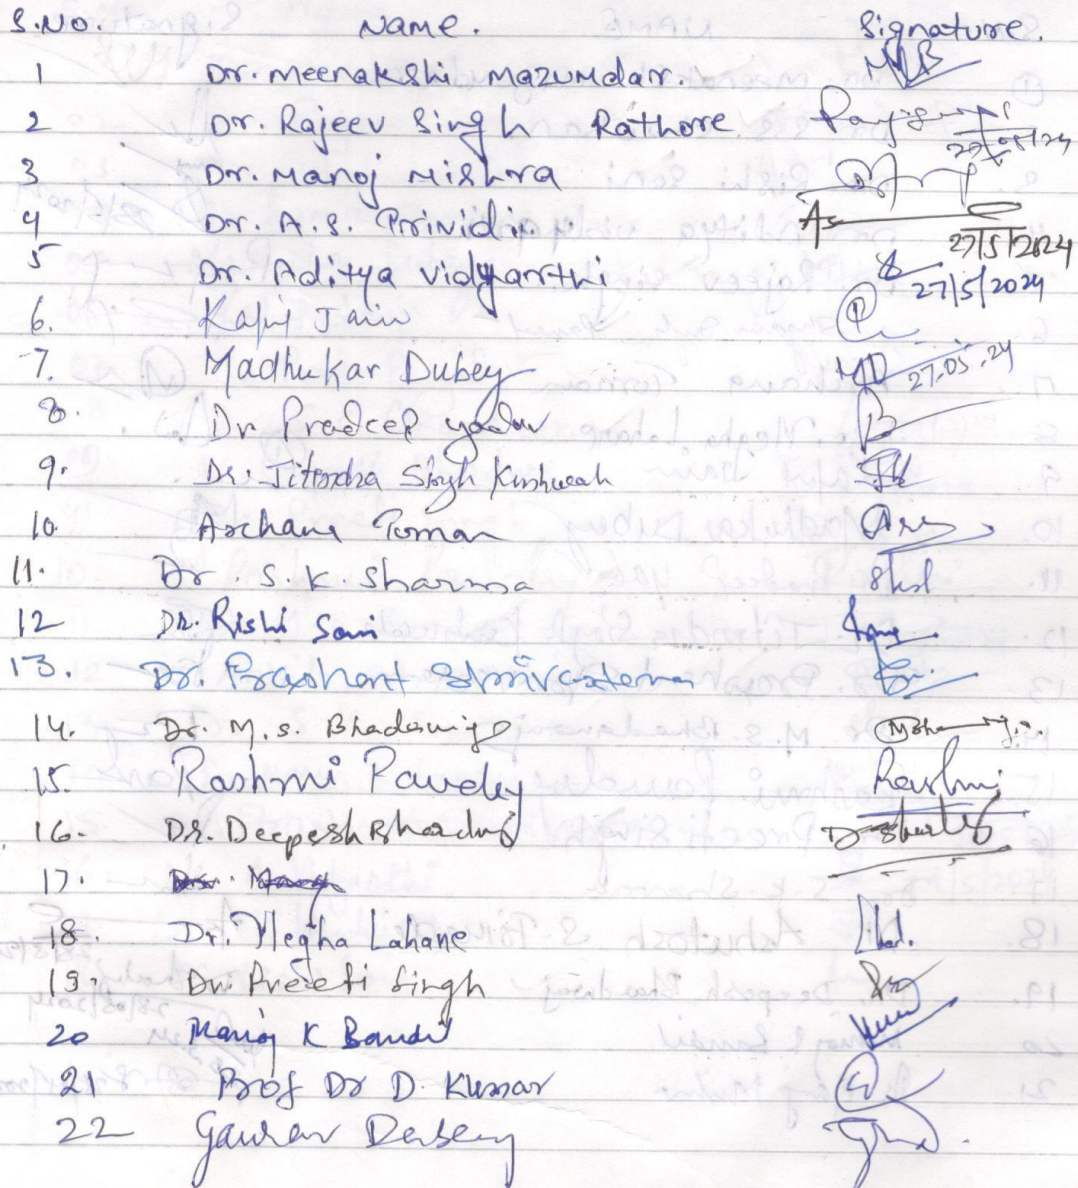 S.No. Name. Signature.
1 Dr. Meenakshi Mazumdar.
2 Dr. Rajeev Singh Rathore 27/05/24
3 Dr. Manoj Mishra
4 Dr. A.S. 27/5/2024
5 Dr. Aditya Vidyarthi 27/5/2024
6. Kapil Jain
7. Madhukar Dubey MD 27.05.24
8. Dr Pradeep Yadav
9. Dr. Jitendra Singh Kushwah
10 Archana Tomar
11. Dr. S. K. Sharma
12 Dr. Rishi Soni
13. Dr. Prashant Shrivastava
14. Dr. M. S. Bhadauria
15. Rashmi Pandey Rashmi
16. Dr. Deepesh Bhadauria
17.
18. Dr. Megha Lahane
19. Dr. Preeti Singh
20 Manoj K Bandil
21 Prof Dr D. Kumar
22 Gaurav Dubey